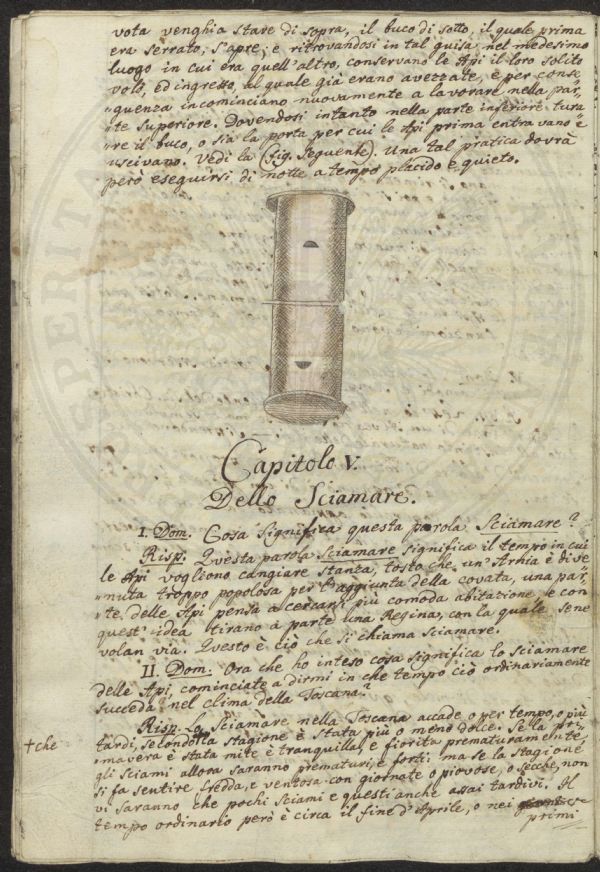 vota venghia stare di sopra, il buco di sotto, il quale prima
era serrato, s'apre; e ritrovandosi in tal guisa nel medesimo
luogo in cui era quell'altro, conservano le Api il loro solito
volo, ed ingresso, al quale già erano avezzate, e per conse
"guenza incominciano nuovamente a lavorare nella par,
"te superiore. Dovendosi intanto nella parte inferiore tura
"re il buco, o sia la porta per cui le Api prima entravano è
uscivano. Vedi la (fig. seguente). Una tal pratica dovrà
però eseguirsi di notte a tempo placido e quieto.
Capitolo V.
Dello Sciamare.
I. Dom. Cosa significa questa parola Sciamare?
Risp. Questa parola Sciamare significa il tempo in cui
le Api vogliono cangiare stanza, tosto che un' Arnia è dive
"nuta troppo popolosa per l'aggiunta della covata, una par,
"te delle Api pensa a cercarsi più comoda abitazione e con
quest' idea tirano à parte una Regina, con la quale sene
volan via. Questo è ciò che si chiama sciamare.
II. Dom. Ora che ho inteso cosa significa lo sciamare
delle Api, cominciate a dirmi in che tempo ciò ordinariamente
succeda nel clima della Toscana?
Risp. Lo Sciamare nella Toscana accade o per tempo, o più
tardi, secondo la stagione è stata più o meno dolce. Se la pri,
†che
"mavera è stata mite è tranquilla, e fiorita prematuramente,
gli Sciami allora saranno prematuri, e forti: ma se la stagione
si fa sentire fredda, e ventosa con giornate o piovose, o secche, non
vi saranno che pochi Sciami e questi anche assai tardivi. Il
tempo ordinario però è circa il fine d'Aprile, o nei
primi